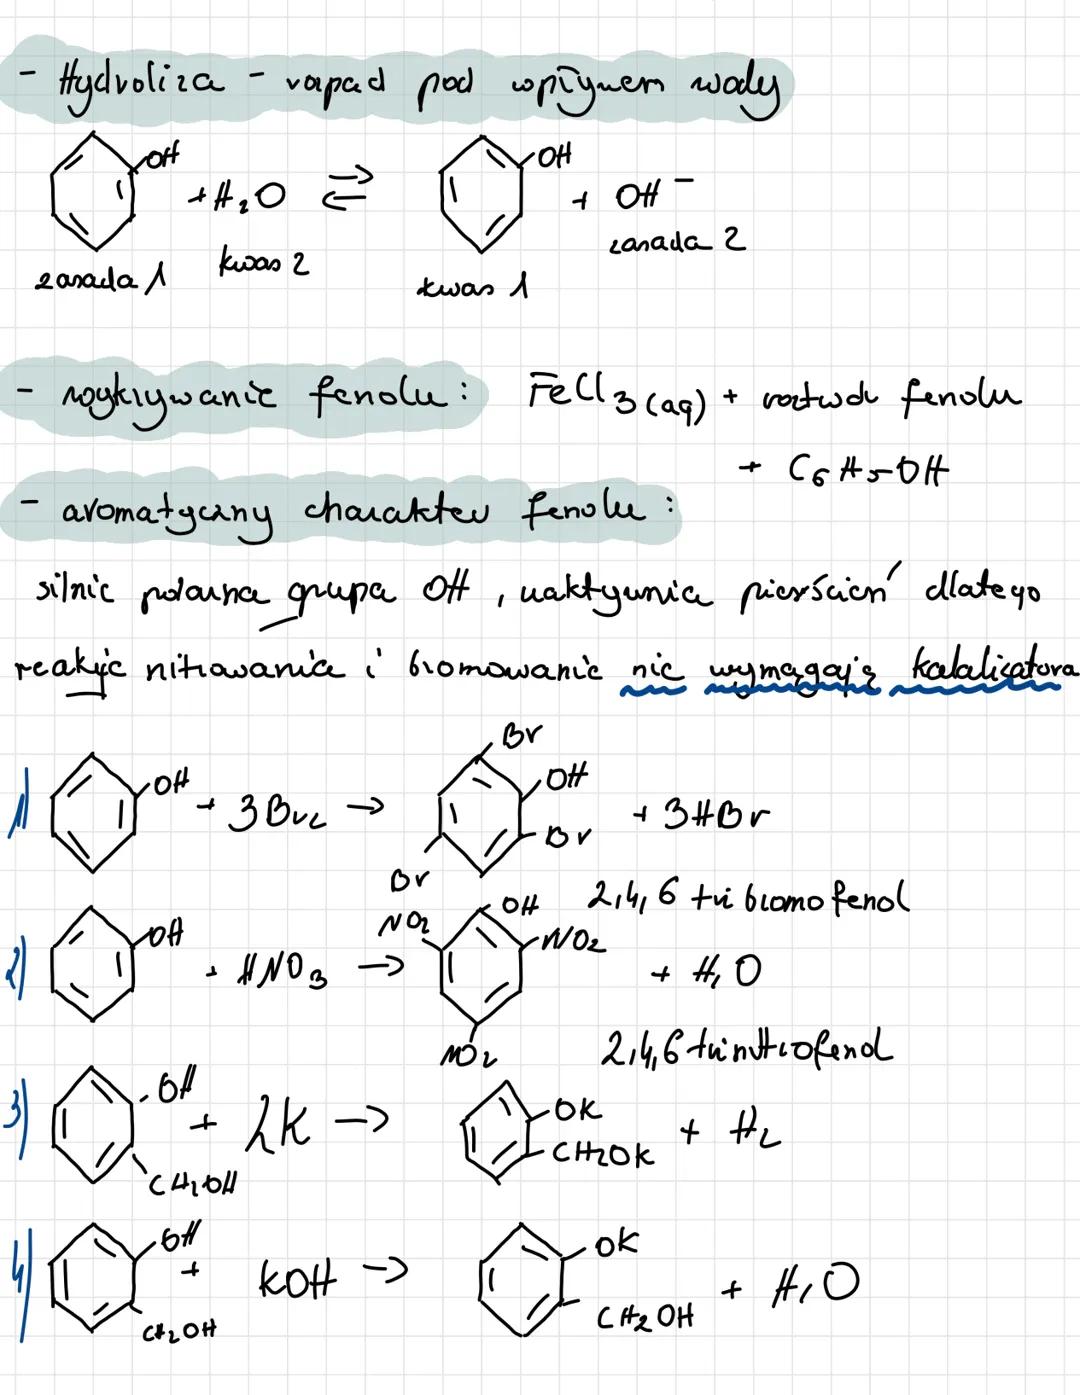 - Hydroliza - rozpad pod wpływem wody
OH + H2O ⇌ OH + OH⁻
zasada 1 kwas 2 kwas 1 zasada 2
- wykrywanie fenolu: FeCl3(aq) + roztwór fenolu
+ C6H5OH
- aromatyczny charakter fenolu:
silnie polarna grupa OH, uaktywnia pierścień dlatego
reakcje nitrowania i bromowanie nie wymagają katalizatora
1) OH + 3Br2 → Br OH Br Br + 3HBr
2,4,6 tri bromo fenol
2) OH + HNO3 → NO2 OH NO2 NO2 + H2O
2,4,6 trinitrofenol
3) OH CH2OH + 2K → OK CH2OK + H2
4) OH CH2OH + KOH → OK CH2OH + H2O